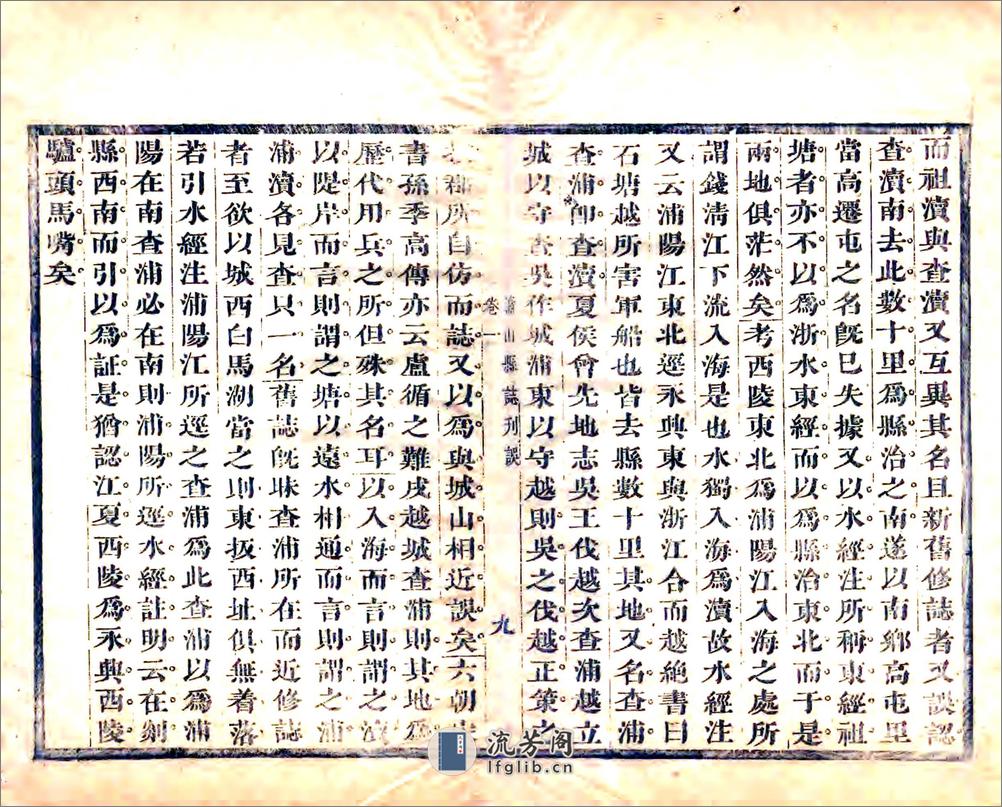 而祖瀆與查瀆又互異其名且新舊修誌者又誤認
查瀆南去此數十里爲縣治之南遂以南鄉高屯里
當高遷屯之名旣已失據又以水經注所稱東經祖
塘者亦不以爲浙水東經而以爲縣治東北而于是
兩地俱茫然矣考西陵東北爲浦陽江入海之處所
謂錢淸江下流入海是也水獨入海爲瀆故水經注
又云浦陽江東北逕永興東與浙江合而越絶書曰
石塘越所害軍船也皆去縣數十里其地又名查浦
查浦卽查瀆夏侯曾先地志吳王伐越次查浦越立
城以守查吳作城浦東以守越則吳之伐越正策之
蕭山縣誌刊誤
卷一
九
所自仿而誌又以爲與城山相近誤矣六朝
書孫季高傳亦云盧循之難戍越城查浦則其地爲
歷代用兵之所但殊其名耳以入海而言則謂之瀆
以隄岸而言則謂之塘以遠水相通而言則謂之浦
浦瀆各見查只一名舊誌旣昧查浦所在而近修誌
者至欲以城西白馬湖當之則東扳西址俱無着落
若引水經注浦陽江所逕之查浦爲此查浦以爲浦
陽在南查浦必在南則浦陽所逕水經註明云在剡
縣西南而引以爲証是猶認江夏西陵爲永興西陵
驢頭馬嘴矣
流芳阁
lfglib.cn